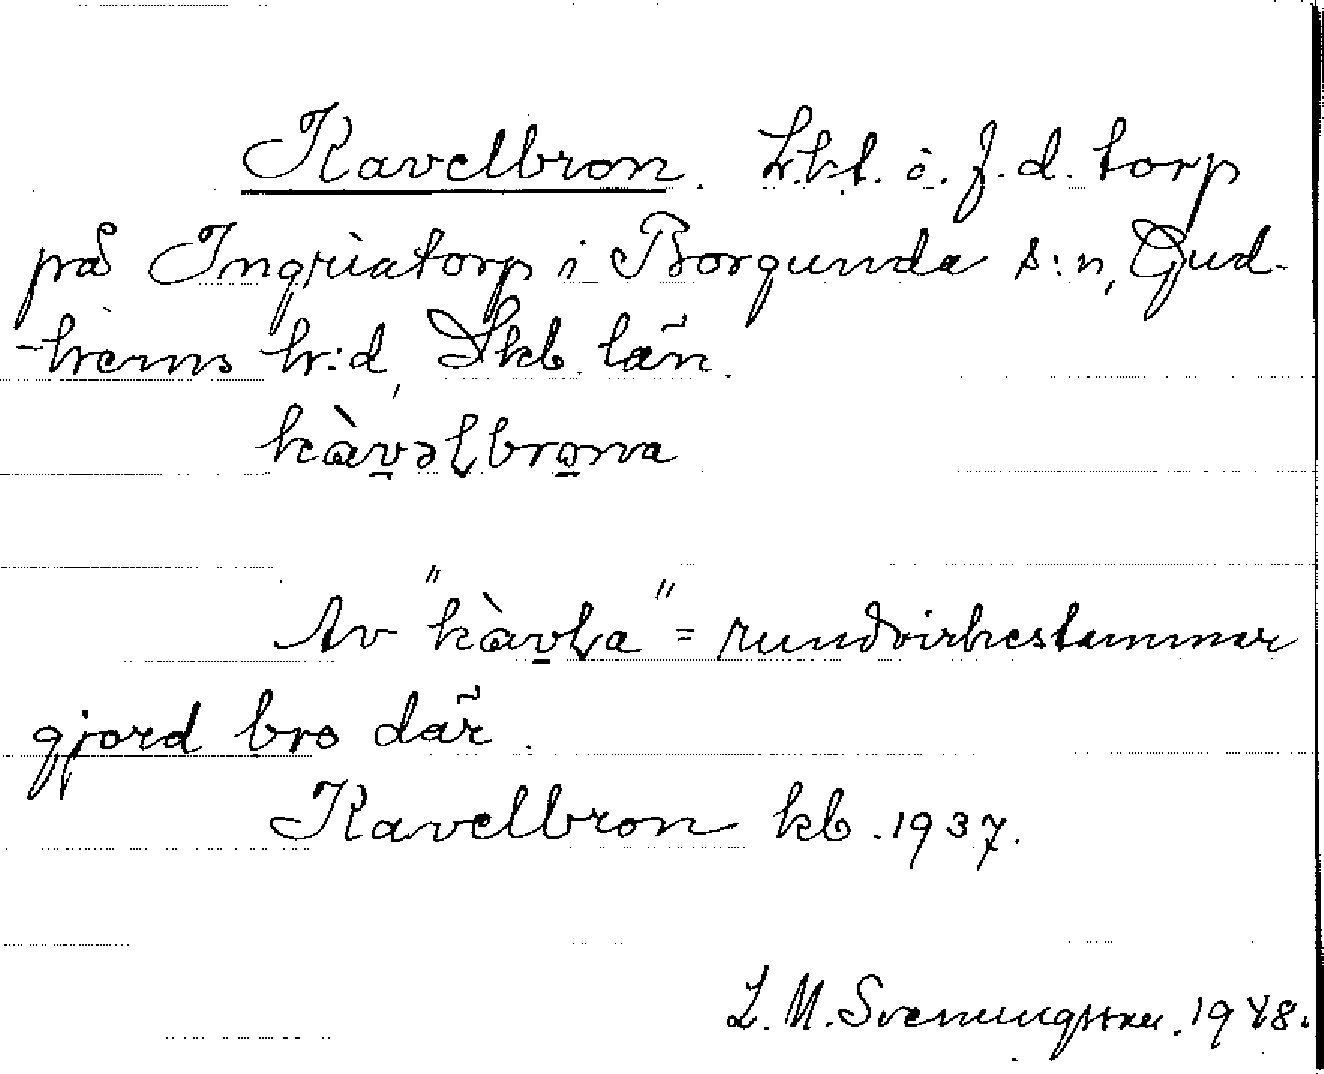 Kavelbron. Lht. o. f.d. torp
på Ingriatorp i Borgunda s:n, Gud-
-hems h:d, Skb. län.
kàvəlbrona
Av "kàvla" = rundvirkestammar
gjord bro där.
Kavelbron kb. 1937.
L. M. Svenungsson. 1948.